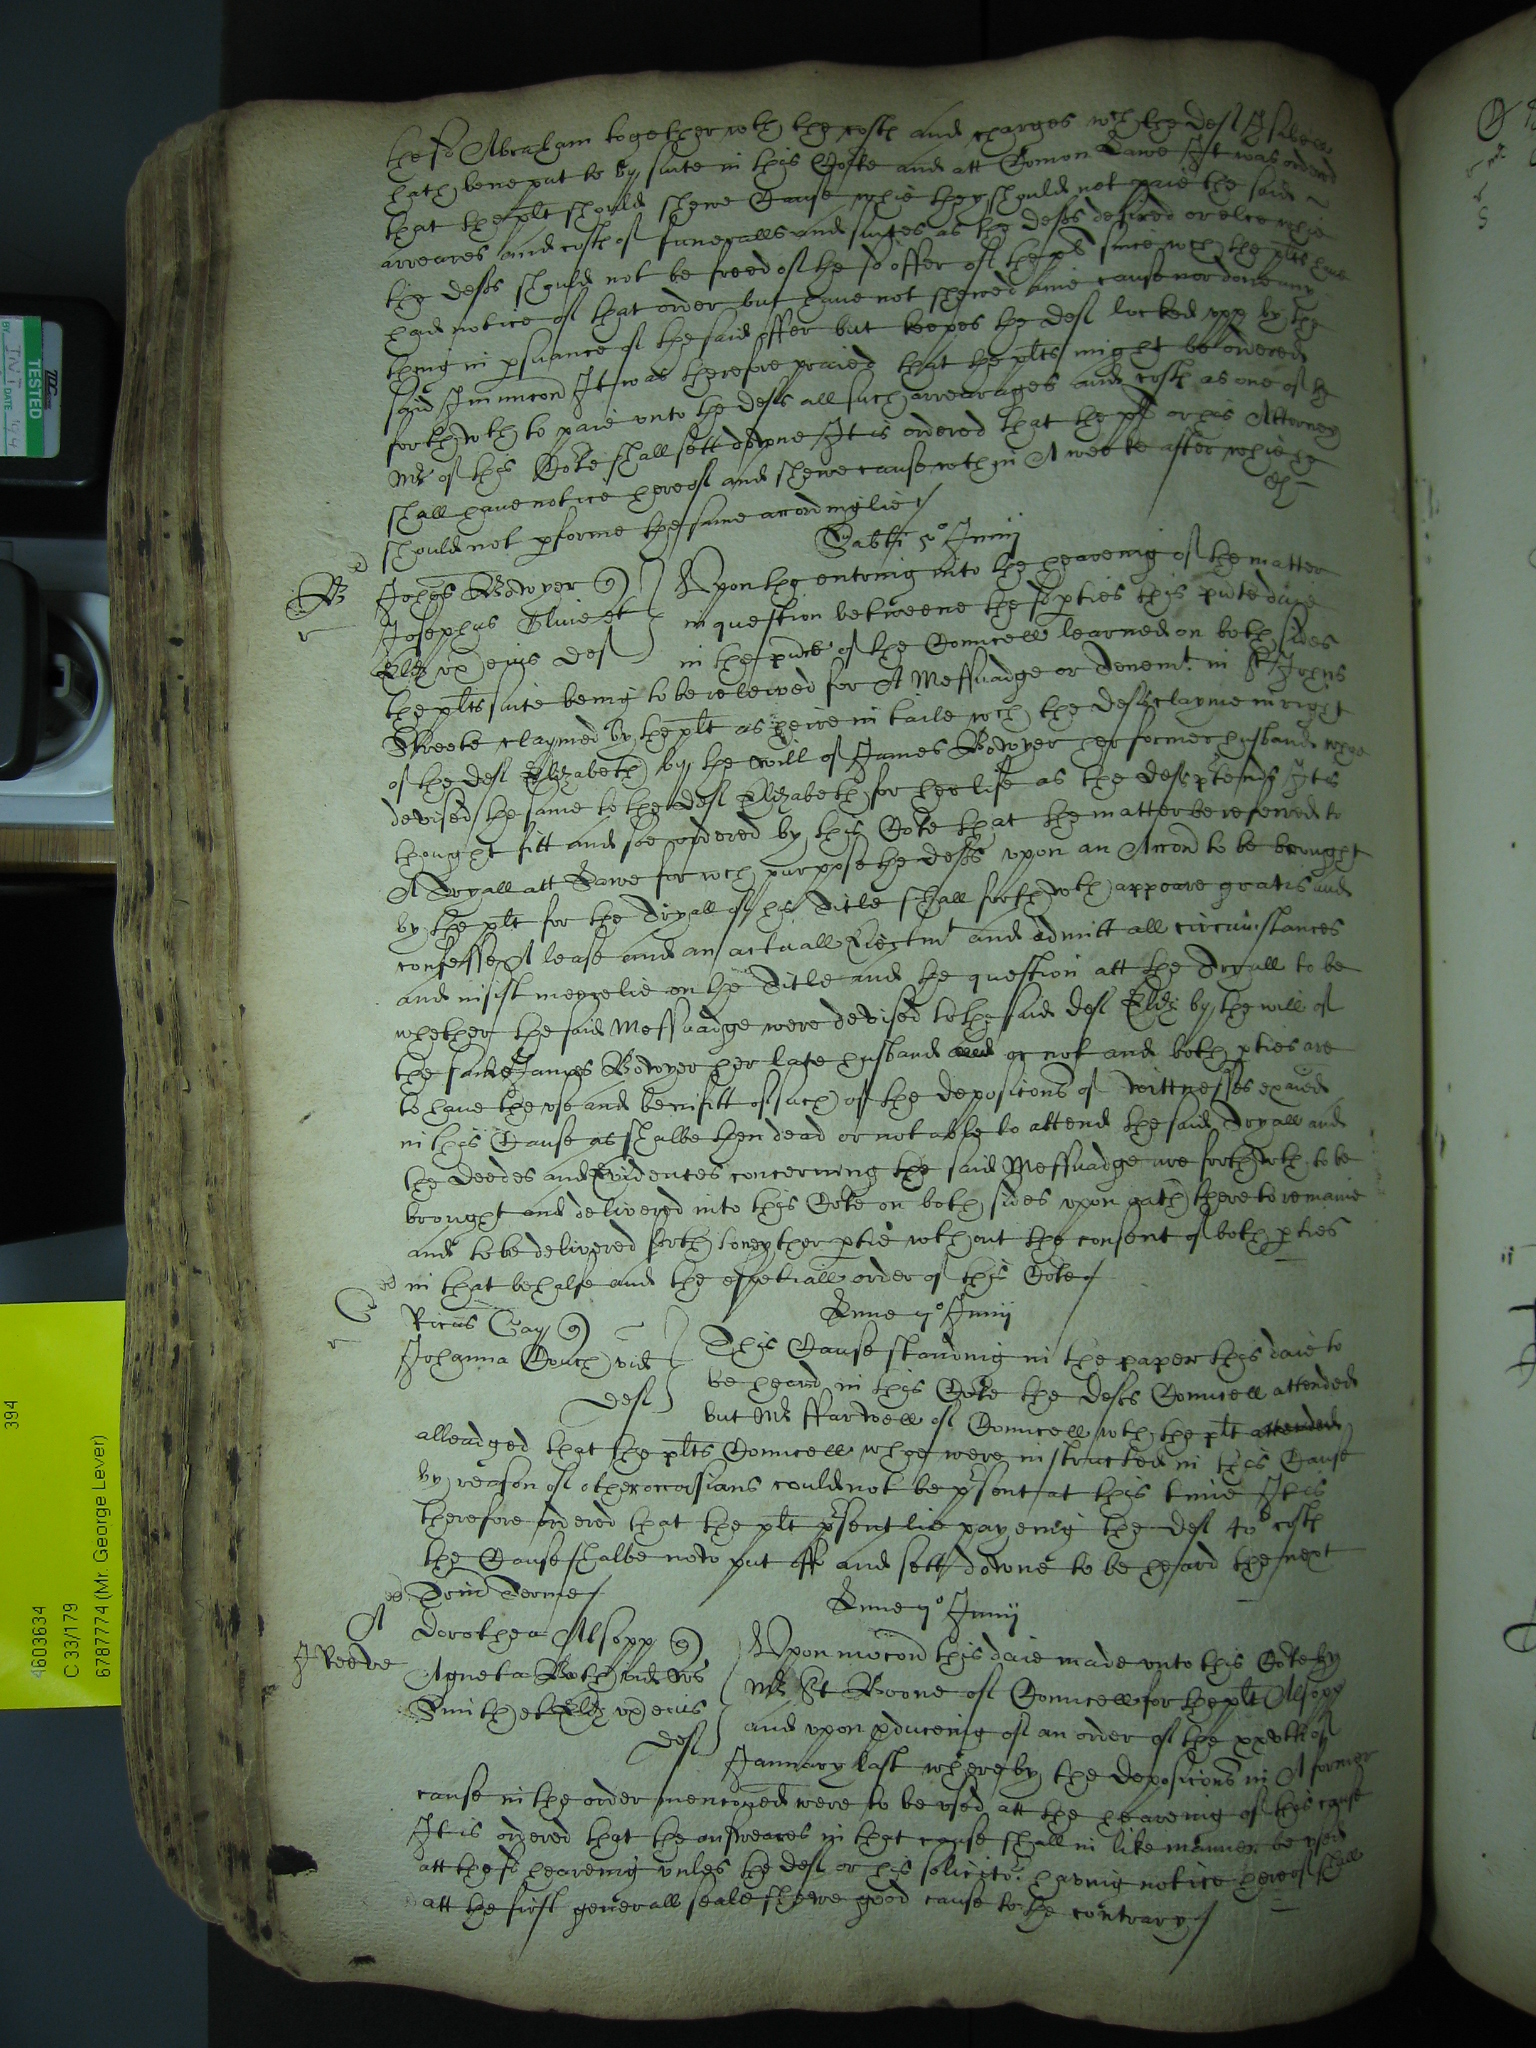 the sd Abraham together wth the costs and charges wch the deft Isabell
hath bene put to by suite in this Co:te and att Comon Lawe It was ordered
that the plt should shewe Cause whie they should not paie the said
arreares and costs of funeralls and suites as the defts desired or else whie
the defts should not be freed of the sd offer of the since wch the plts have
had notice of that order but have not shewed anie cause nor done any
thing in psuance of the said offer but keepes the deft locked upp by the
said Iniuncon It was therefore praied that the plts might be ordered
forthwth to paie unto the defts all such arrearages and costs as one of the
Mrs of this Co:te shall sett downe It is ordered that the plt or his Attorney
shall have notice hereof and shewe cause wthin A weeke after whie he
should not pforme the same accordinglie
Sabti 5o Junij
B
Johes Bowyer q
Josephus Clive et
Eliz ux eius deft
Upon the entring into the hearing of the matter
in question betweene the sd pties this pnte daie
in the pnce of the Councell learned on both sides
the plts suite being to be releived for A Messuadge or Tenemt in St Johns
Streete claymed by the plt as heire in taile wch the defts clayme in right
of the deft Elizabeth by the will of James Bowyer her former husband whoe
devised the same to the deft Elizabeth for her life as the defts ptend It is
thought fitt and soe ordered by this Co:te that the matter be referred to
A Tryall att Lawe for wch purpose the defts upon an Accon to be brought
by the plt for the Tryall of his Title shall forthwth appeare gratis and
confesse A lease and an actuall Eiectmt and admitt all circumstances
and insist meerelie on the Title and the question att the Tryall to be
whether the said Messuadge were devised to the said deft Eliz by the will of
the said James Bowyer her late husband or not and both pties are
to have the use and benifitt of such of the deposicons of wittnesses exaied
in this Cause as shalbe then dead or not able to attend the said Tryall and
the deedes and Evidences concerning the said Messuadge are forthwth to be
brought and delivered into this Co:te on both sides upon oath there to remaine
and to be delivered forth to neyther ptie wthout the consent of both pties
in that behalfe and the espetiall order of this Co:te
Lune 7o Junij
G
Ricus Gay q
Johanna Couch vid
deft
This Cause standing in the paper this daie to
be heard in this Co:te the defts Councell attended
but Mr ffarwell of Councell wth the plt attended
alleadged that the plts Councell whoe were instructed in this Cause
by reason of other occasians could not be psent at this time It is
therefore ordered that the plt psentlie payeing the deft 40s costs
the Cause shalbe nowe put off and sett downe to be heard the next
Trin Terme
Lune 7o Junij
A
J Reeve
Dorothea Alsopp q
Agneta Both vid
Smith et Eliz ux eius
deft
Upon mocon this daie made unto this Co:te by
Mr St Boone of Councell for the plt Alsopp
and upon pduceing of an order of the xxvth of
January last whereby the deposicons in A former
cause in the order menconed were to be used att the heareing of this cause
It is ordered that the answeares in that cause shall in like manner be used
att the sd heareing unles the deft or his solicitor having notice hereof shall
att the first generall seale shewe good cause to the contrary
TESTED
DATE
394
4603634
C 33/179
6787774 (Mr. George Lever)